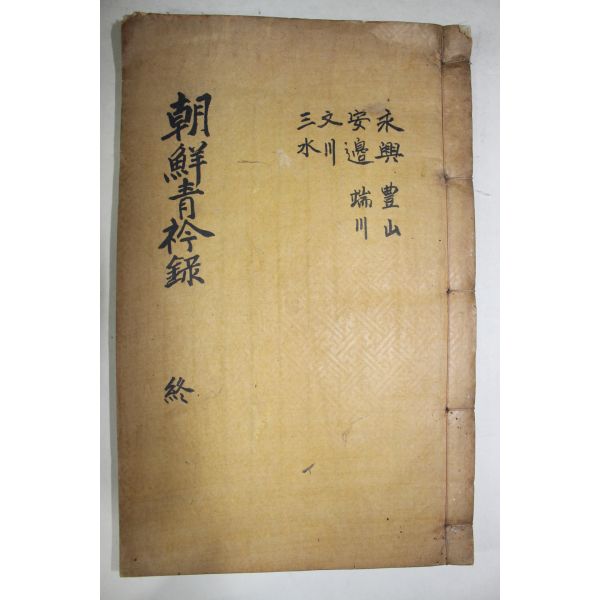 永興 豊山
安邊 端川
文川
三水
朝鮮青衿録
終